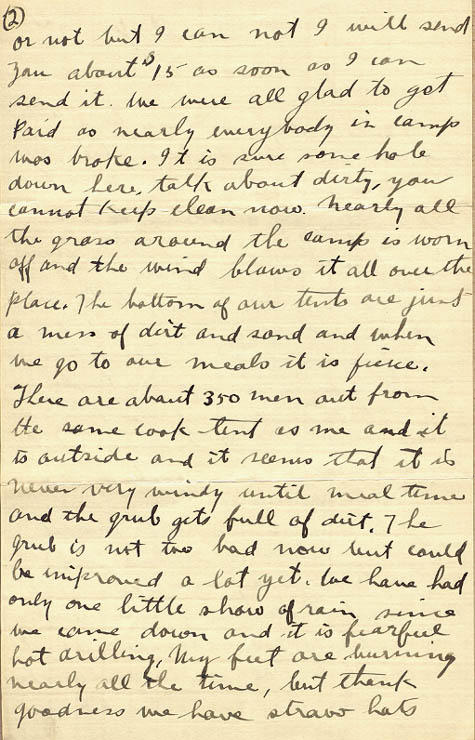 (2)
or not but I can not I will send
you about $15 as soon as I can
send it. We were all glad to get
paid as nearly everybody in camp
was broke. It is sure some hole
down here, talk about dirty, you
cannot keep clean now. Nearly all
the grass around the camp is worn
off and the wind blows it all over the
place. The bottom of our tents are just
a mess of dirt and sand and when
we go to our meals it is fierce.
There are about 350 men out from
the same cook tent as me and it
is outside and it seems that it is
never very windy until meal time
and the grub gets full of dirt. The
grub is not too bad now but could
be improved a lot yet. We have had
only one little show of rain since
we came down and it is fearful
hot drilling, My feet are burning
nearly all the time, but thank
goodness we have straw hats